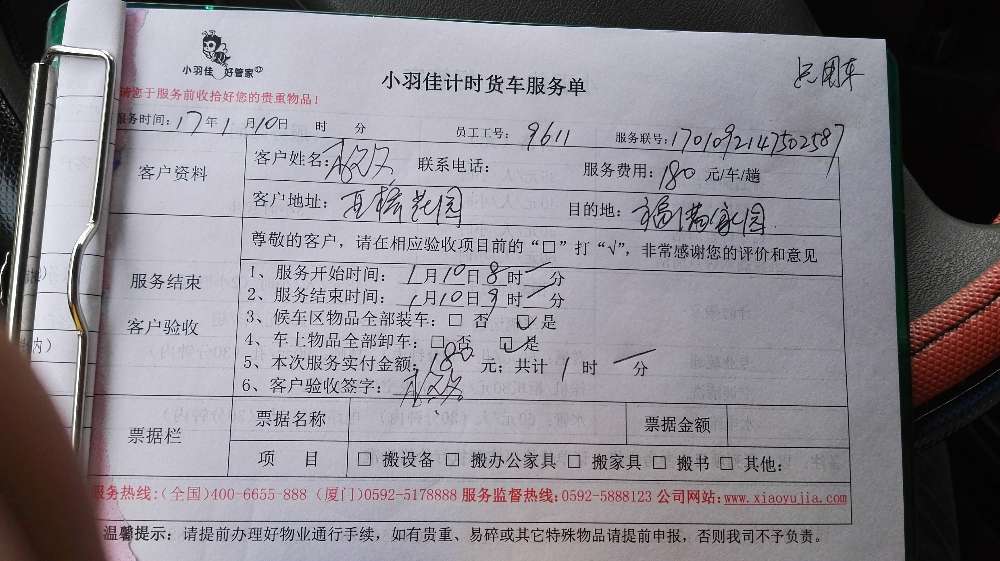 小羽佳 好管家
小羽佳计时货车服务单
只用车
请您于服务前收拾好您的贵重物品！
服务时间：17年1月10日 时 分 员工工号：9611 服务联号：1701092147502587
客户资料
客户姓名： 联系电话： 服务费用：180元/车/趟
客户地址： 花园 目的地：福满家园
尊敬的客户，请在相应验收项目前的“□”打“√”，非常感谢您的评价和意见
服务结束
客户验收
1、服务开始时间：1月10日8时一分
2、服务结束时间：1月10日9时一分
3、候车区物品全部装车：□ 否 ☑ 是
4、车上物品全部卸车：□ 否 ☑ 是
5、本次服务实付金额：180元；共计1时一分
6、客户验收签字：
票据栏
票据名称 票据金额
项 目 □ 搬设备 □ 搬办公家具 □ 搬家具 □ 搬书 □ 其他：
服务热线：(全国)400-6655 888 (厦门)0592-5178888 服务监督热线：0592-5888123 公司网站：www.xiaoyujia.com
温馨提示：请提前办理好物业通行手续，如有贵重、易碎或其它特殊物品请提前申报，否则我司不予负责。